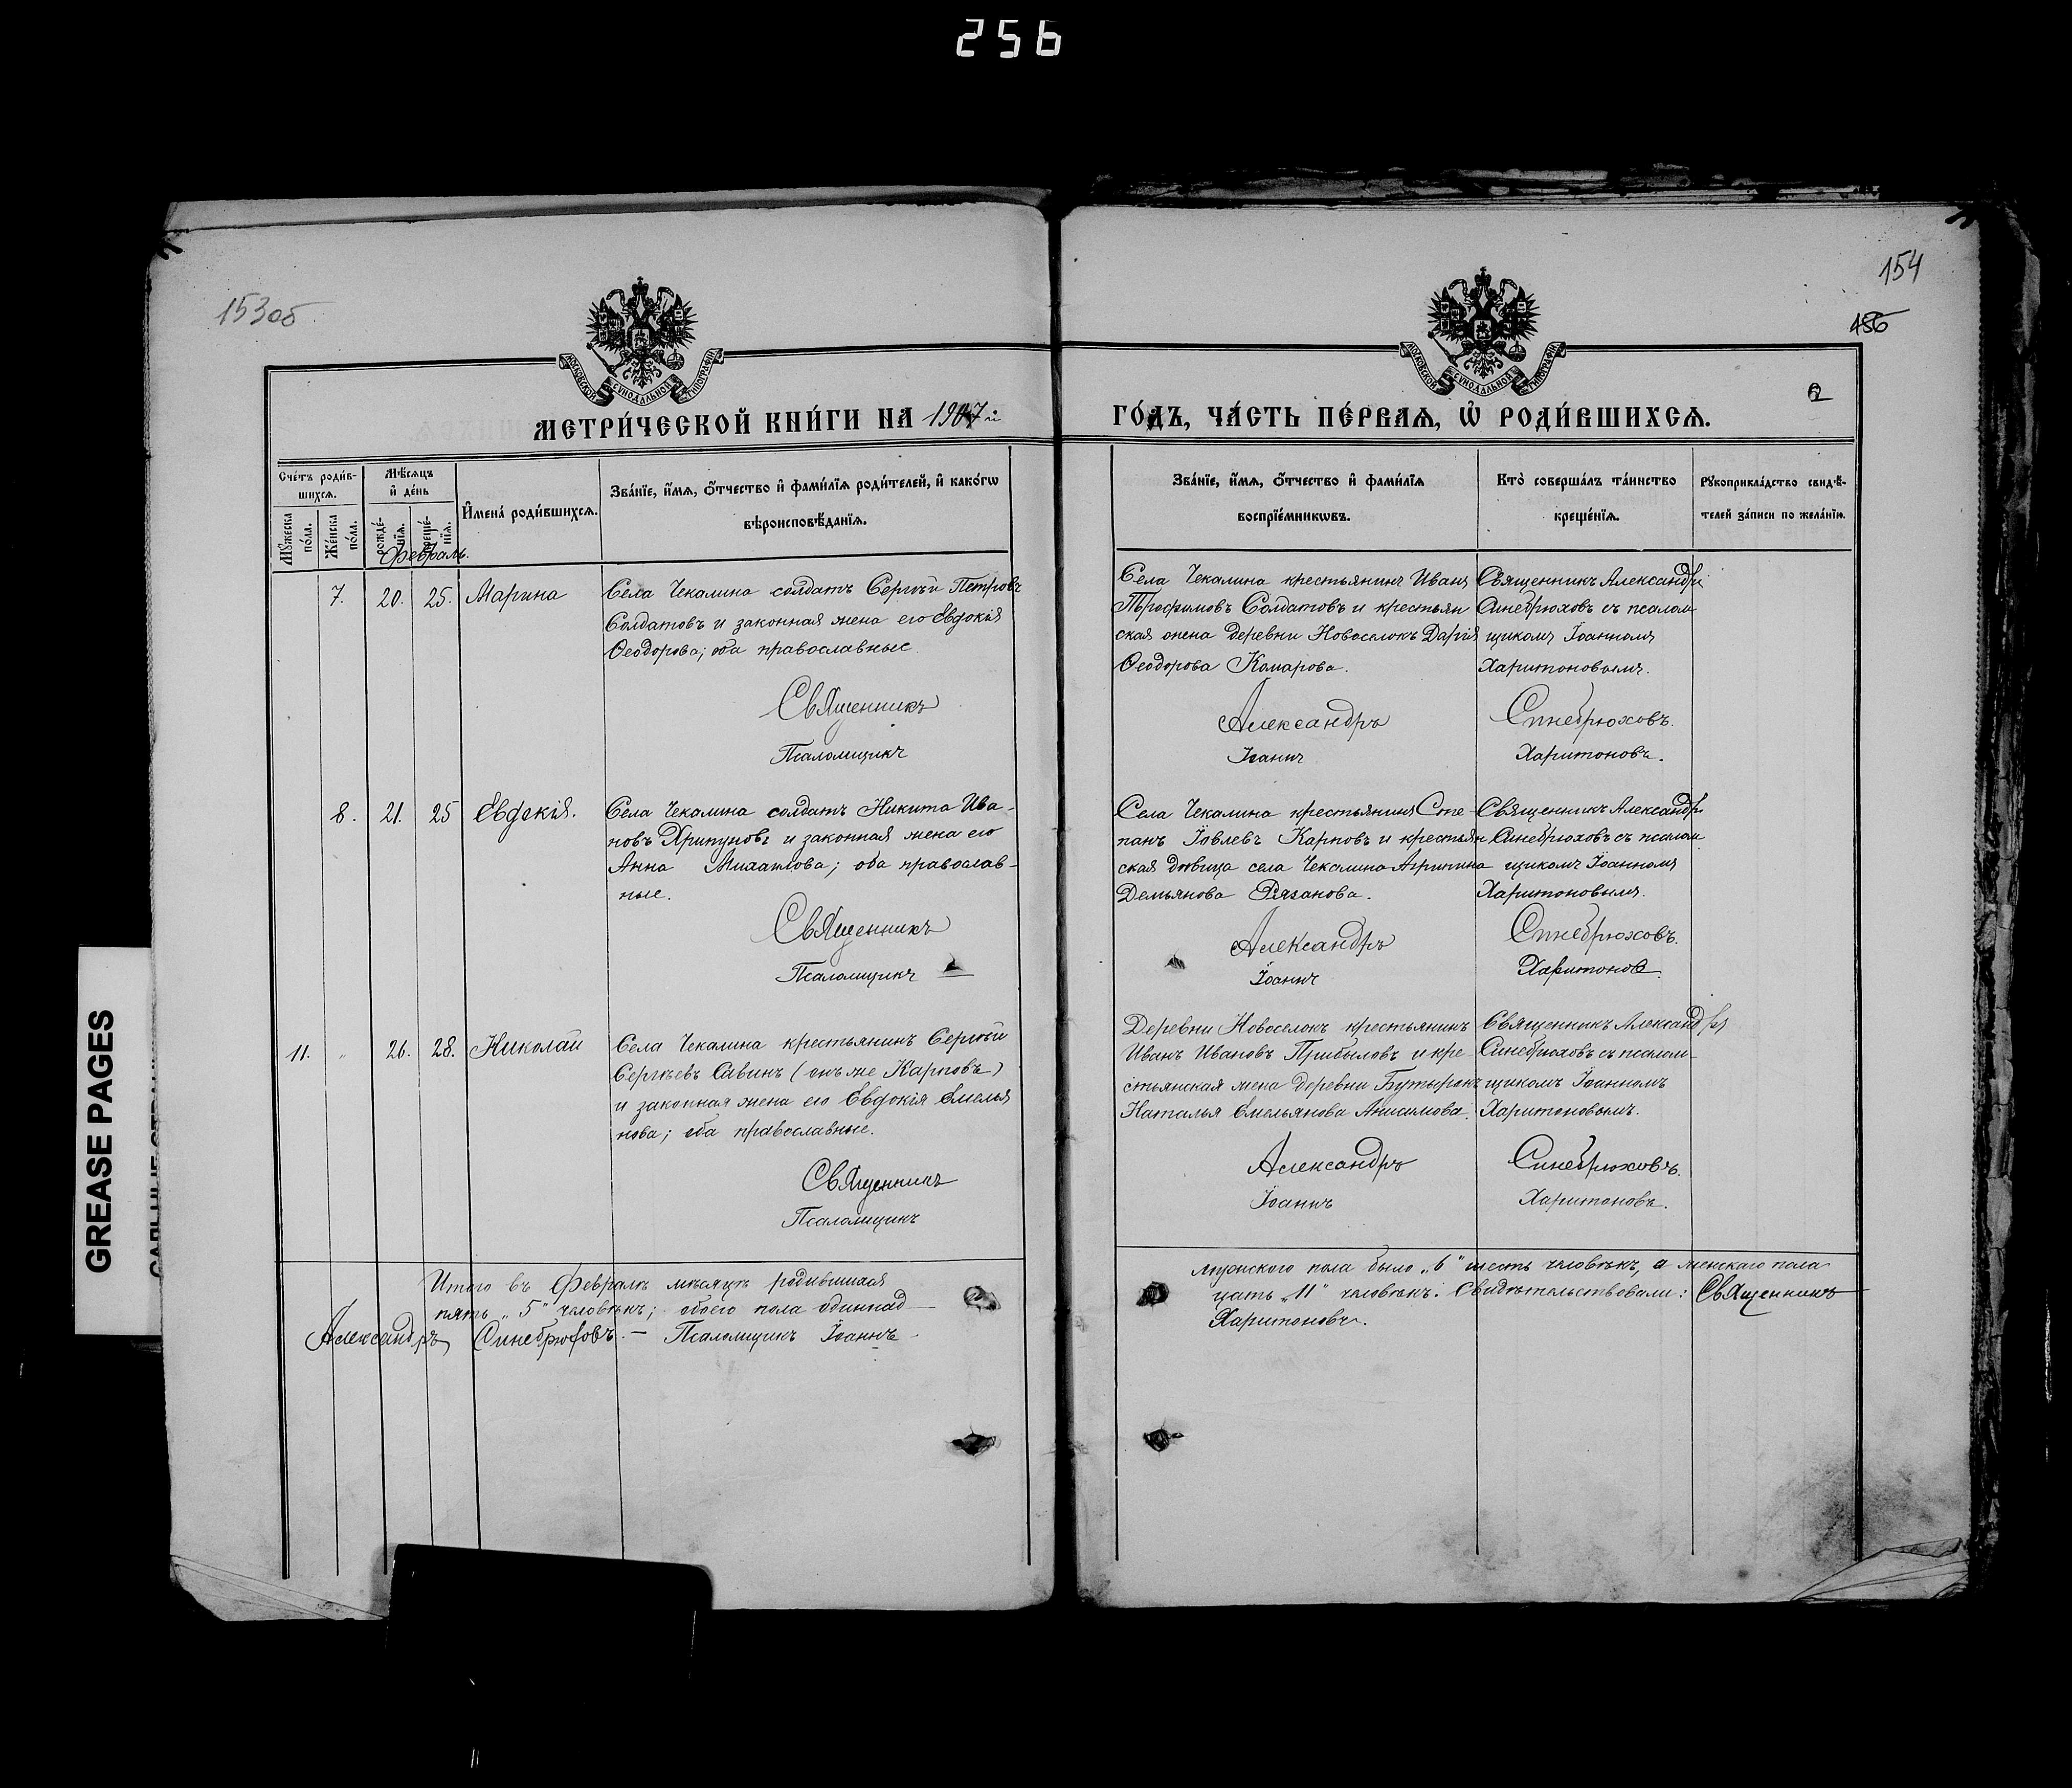 256
153об
154
156
2
МОСКОВСКОЙ СѴНОДАЛЬНОЙ ТИПОГРАФІИ
МОСКОВСКОЙ СѴНОДАЛЬНОЙ ТИПОГРАФІИ
МЕТРИ́ЧЕСКОЙ КНИ́ГИ НА 1907й
ГО́ДЪ, ЧА́СТЬ ПЕ́РВАѦ, Ѡ҆ РОДИ́ВШИХСѦ.
Сче́тъ роди́в-
шихсѧ.
Мꙋ́жеска по́ла.
Же́нска по́ла.
Мѣ́сѧцъ
и҆ де́нь
рожде́-
нїѧ.
креще́-
нїѧ.
И҆мена̀ роди́вшихсѧ.
Зва́нїе, и҆́мѧ, ѻ҆́тчество и҆ фами́лїѧ роди́телей, и҆ како́гѡ
вѣроисповѣ́данїѧ.
Зва́нїе, и҆́мѧ, ѻ҆́тчество и҆ фами́лїѧ
воспрїе́мникѡвъ.
Кто̀ соверша́лъ та́инство
креще́нїѧ.
Рꙋкоприкла́дство свидѣ́-
телей за́писи по жела́нїю.
Февраль.
7. 20. 25. Марина
Села Чекалина солдатъ Сергѣй Петровъ
Солдатовъ и законная жена его Евдокія
Ѳеодорова; оба православные.
Священникъ
Псаломщикъ
Села Чекалина крестьянинъ Иванъ
Трофимовъ Солдатовъ и крестьян
ская жена деревни Новоселокъ Дарія
Ѳеодорова Комарова.
Александръ
Іоаннъ
Священникъ Александръ
Синебрюховъ съ псалом
щикомъ Іоанномъ
Харитоновымъ.
Синебрюховъ.
Харитоновъ.
8. 21. 25 Евдокія.
Села Чекалина солдатъ Никита Ива-
новъ Хрипуновъ и законная жена его
Анна Михайлова; оба православ-
ные.
Священникъ
Псаломщикъ
Села Чекалина крестьянинъ Сте-
панъ Іовлевъ Карповъ и крестьян
ская дѣвица села Чекалина Агрипина
Демьянова Рязанова.
Александръ
Іоаннъ
Священникъ Александръ
Синебрюховъ съ псалом
щикомъ Іоанномъ
Харитоновымъ.
Синебрюховъ.
Харитоновъ.
11. „ 26. 28. Николай
Села Чекалина крестьянинъ Сергѣй
Сергѣевъ Савинъ (онъ же Карповъ)
и законная жена его Евдокія Емелья
нова; оба православные.
Священникъ
Псаломщикъ
Деревни Новоселокъ крестьянинъ
Иванъ Ивановъ Прибыловъ и кре-
стьянская жена деревни Бутырокъ
Наталья Емельянова Анисимова.
Александръ
Іоаннъ
Священникъ Александръ
Синебрюховъ съ псалом-
щикомъ Іоанномъ
Харитоновымъ.
Синебрюховъ.
Харитоновъ.
Итого въ Февралѣ мѣсяцѣ родившихся
мужского пола было „6" шесть человѣкъ, а женскаго пола
пять „5" человѣкъ; обоего пола одиннад-
цать „11" человѣкъ. Свидѣтельствовали: Священникъ
Александръ Синебрюховъ. — Псаломщикъ Іоаннъ
Харитоновъ.
GREASE PAGES